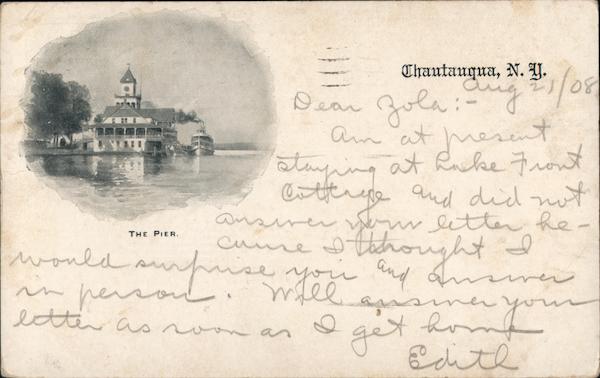 Chautauqua, N. Y.
Aug 21/08
Dear Zola:-
Am at present
staying at Lake Front
Cottage and did not
answer your letter be-
cause I thought I
would surprise you and answer
in person. Will answer your
letter as soon as I get home
Edith
THE PIER.